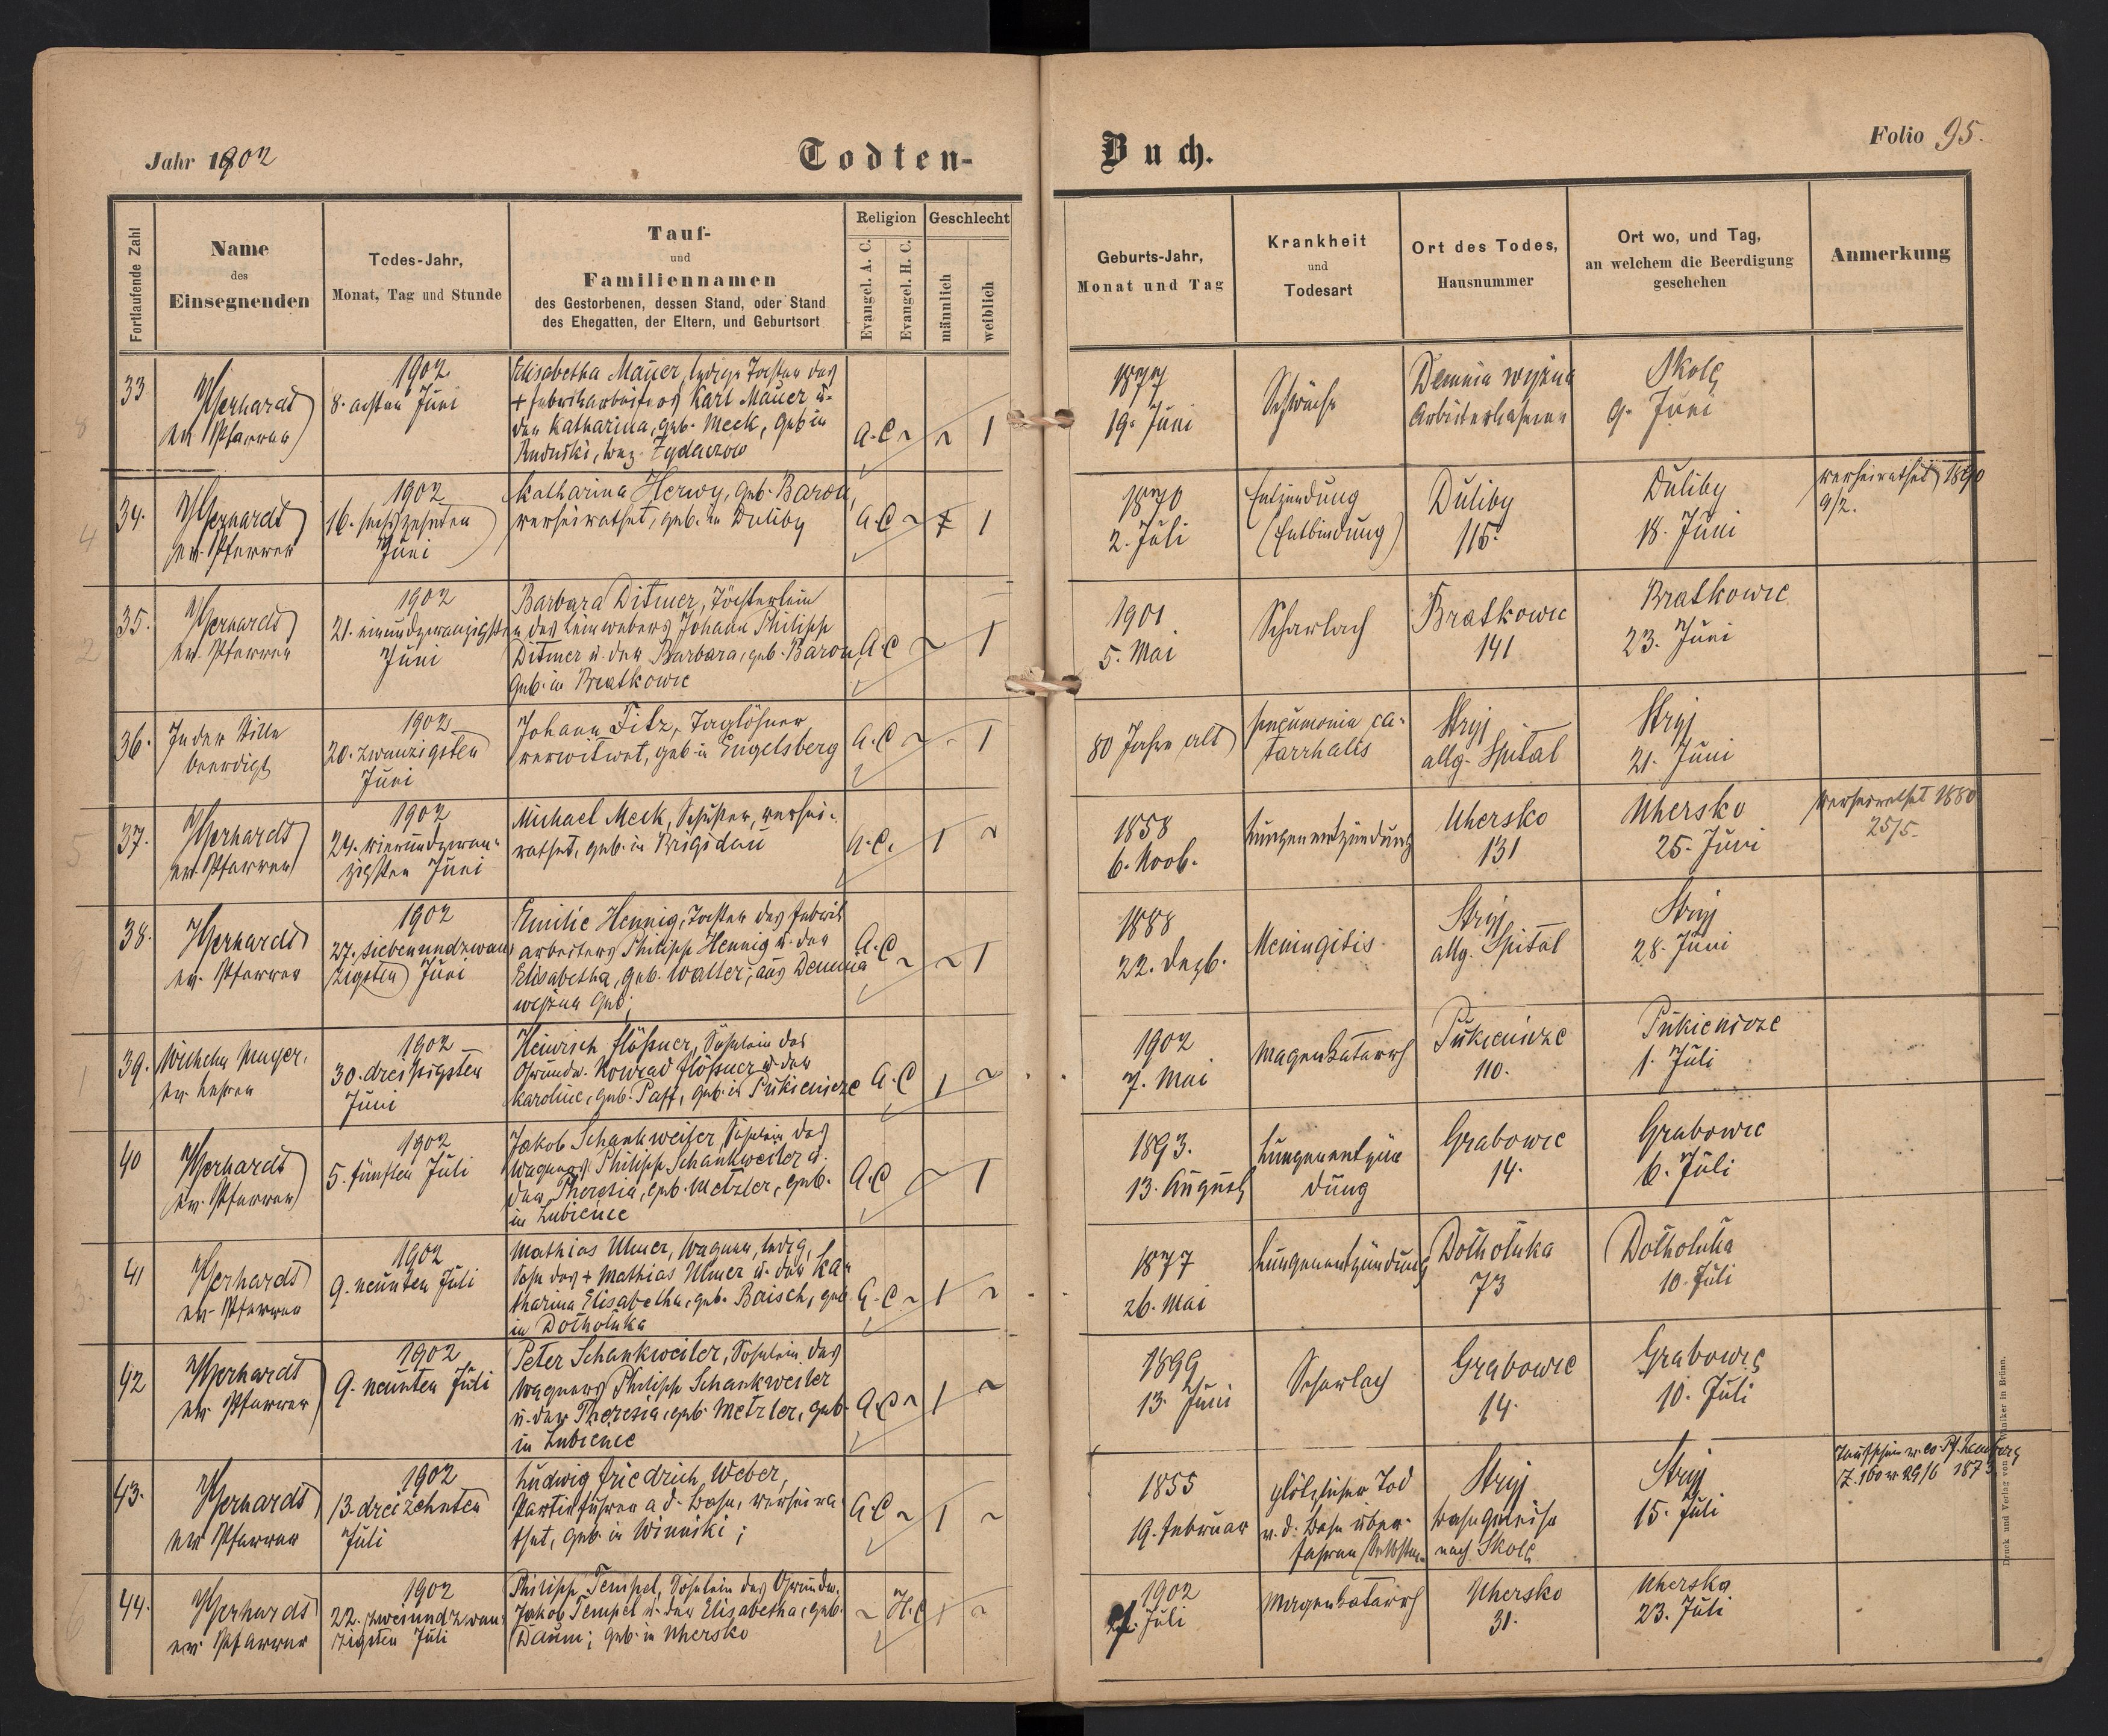 Jahr 1902
Todten-
Buch.
Folio 95.
Fortlaufende Zahl
Name
des
Einsegnenden
Todes-Jahr,
Monat, Tag und Stunde
Tauf-
und
Familiennamen
des Gestorbenen, dessen Stand, oder Stand
des Ehegatten, der Eltern, und Geburtsort
Religion
Evangel. A. C.
Evangel. H. C.
Geschlecht
männlich
weiblich
Geburts-Jahr,
Monat und Tag
Krankheit
und
Todesart
Ort des Todes,
Hausnummer
Ort wo, und Tag,
an welchem die Beerdigung
geschehen
Anmerkung
33
ev. Pfarrer
1902
8. achten Juni
Elisabetha Mauer, ledige Tochter des
+ Fabriksarbeiters Karl Mauer u.
der Katharina, geb. Meck, geb in
Zydaczow
A. C ~ ~ 1
1877
19. Juni
Schwäche
Demnia wyżna
Skole
9. Juni
34.
ev. Pfarrer
1902
16. sechszehnten
Juni
Katharina Herwy, geb. Baron,
verheirathet, geb. in Duliby
A. C ~ 1
1870
2. Juli
Entzündung
(Entbindung)
Duliby
115.
Duliby
18. Juni
verheirathet 1890
9/2.
35.
ev. Pfarrer
1902
21. einundzwanzigsten
Juni
Barbara Ditmer, Töchterlein
des Leinwebers Johann Philipp
Ditmer u. der Barbara, geb. Baron,
geb. in Bratkowce
A. C ~ 1
1901
5. Mai
Scharlach
Bratkowce
141
Bratkowce
23. Juni
36.
In der Stille
beerdigt
1902
20. zwanzigsten
Juni
Johann Fitz, Taglöhner
verwitwet, geb in Engelsberg
A. C ~ - 1
80 Jahre alt
pneumonia ca-
tarrhalis
Stryj
allg. Spital
Stryj
21. Juni
37.
ev. Pfarrer
1902
24. vierundzwan-
zigsten Juni
Michael Meck, Schuster, verhei-
rathet, geb. in Brigidau
A. C. 1 ~
1858
6. Novb.
Lungenentzündung
Uhersko
131
Uhersko
25. Juni
verheirathet 1880
25/5.
38.
ev. Pfarrer
1902
27. siebenundzwan-
zigsten Juni
Emilie Hennig, Tochter des Fabriks
arbeiters Philipp Hennig u. der
Elisabetha, geb. Walter; aus Demnia
wyżna geb.
A. C ~ ~ 1
1888
22. Dezb.
Meningitis
Stryj
allg. Spital
Stryj
28. Juni
39.
Wilhelm Mayer,
ev. Lehrer
1902
30. dreißigsten
Juni
Heinrich Flößner, Söhnlein des
Grundw. Konrad Flößner u. der
Karoline, geb. Paff, geb. in Pukienicze
A. C 1 ~
1902
7. Mai
Magenkatarrh
Pukienicze
110.
Pukienicze
1. Juli
40
ev. Pfarrer
1902
5. fünften Juli
Jakob Schankweiler, Söhnlein des
Wagners Philipp Schankweiler u.
der Theresia, geb. Metzler, geb.
in Lubience
A. C ~ 1
1893.
13. August
Lungenentzün
dung
Grabowce
14.
Grabowce
6. Juli
41
ev. Pfarrer
1902
9. neunten Juli
Mathias Ulmer, Wagner, ledig,
Sohn des + Mathias Ulmer u. der Ka-
tharina Elisabetha, geb. Baisch, geb.
in Dolholuka
A. C ~ 1 ~
1877
26. Mai
Lungenentzündung
Dolholuka
73
Dolholuka
10. Juli
42
ev. Pfarrer
1902
9. neunten Juli
Peter Schankweiler, Söhnlein des
Wagners Philipp Schankweiler
u. der Theresia, geb. Metzler, geb.
in Lubience
A. C ~ 1 ~
1899
13. Juni
Scharlach
Grabowce
14.
Grabowce
10. Juli
43.
ev. Pfarrer
1902
13. dreizehnten
Juli
Ludwig Friedrich Weber,
Partieführer a. d. Bahn, verheira-
thet, geb in Winniki;
A. C ~ 1 ~
1855
19. Februar
plötzlicher Tod
v. d. Bahn über-
fahren
Stryj
nach Skole
Stryj
15. Juli
44.
ev. Pfarrer
1902
22. zweiundzwan-
zigsten Juli
Philipp Tempel, Söhnlein des Grundw.
Jakob Tempel u. der Elisabetha, geb.
Daum; geb. in Uhersko
~ H. C 1 ~
1902
Juli
Magenkatarrh
Uhersko
31.
Uhersko
23. Juli